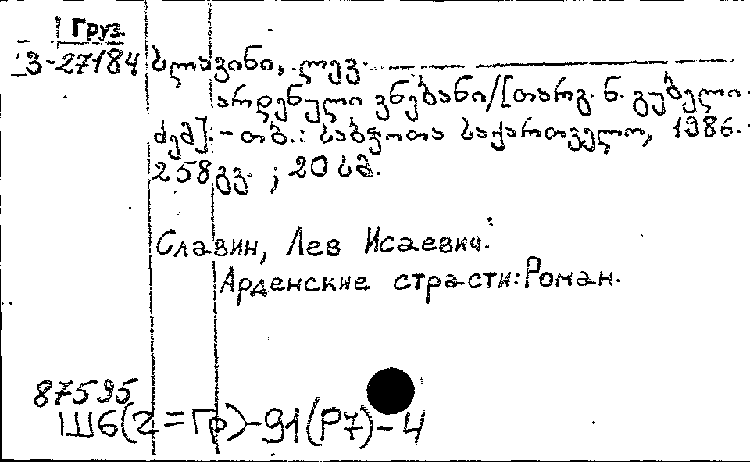 Груз.
З-27184 სლავინი, ლევ.
არდენული ვნებანი/[თარგ. ნ. გუბელი
ძემ]. - თბ.: საბჭოთა საქართველო, 1986. -
258გვ. ; 20 სმ.
Славин, Лев Исаевич.
Арденские страсти: Роман.
87595
Ш6(2=Гр)-91(Р7)-4